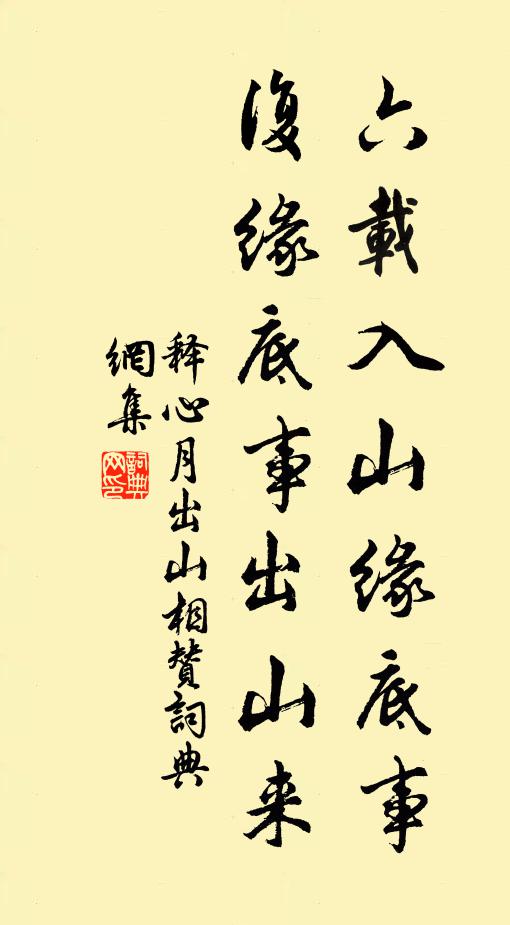 六載入山緣底事
復緣底事出山来
释心月出山相赞詞典
網集
詞典
网印